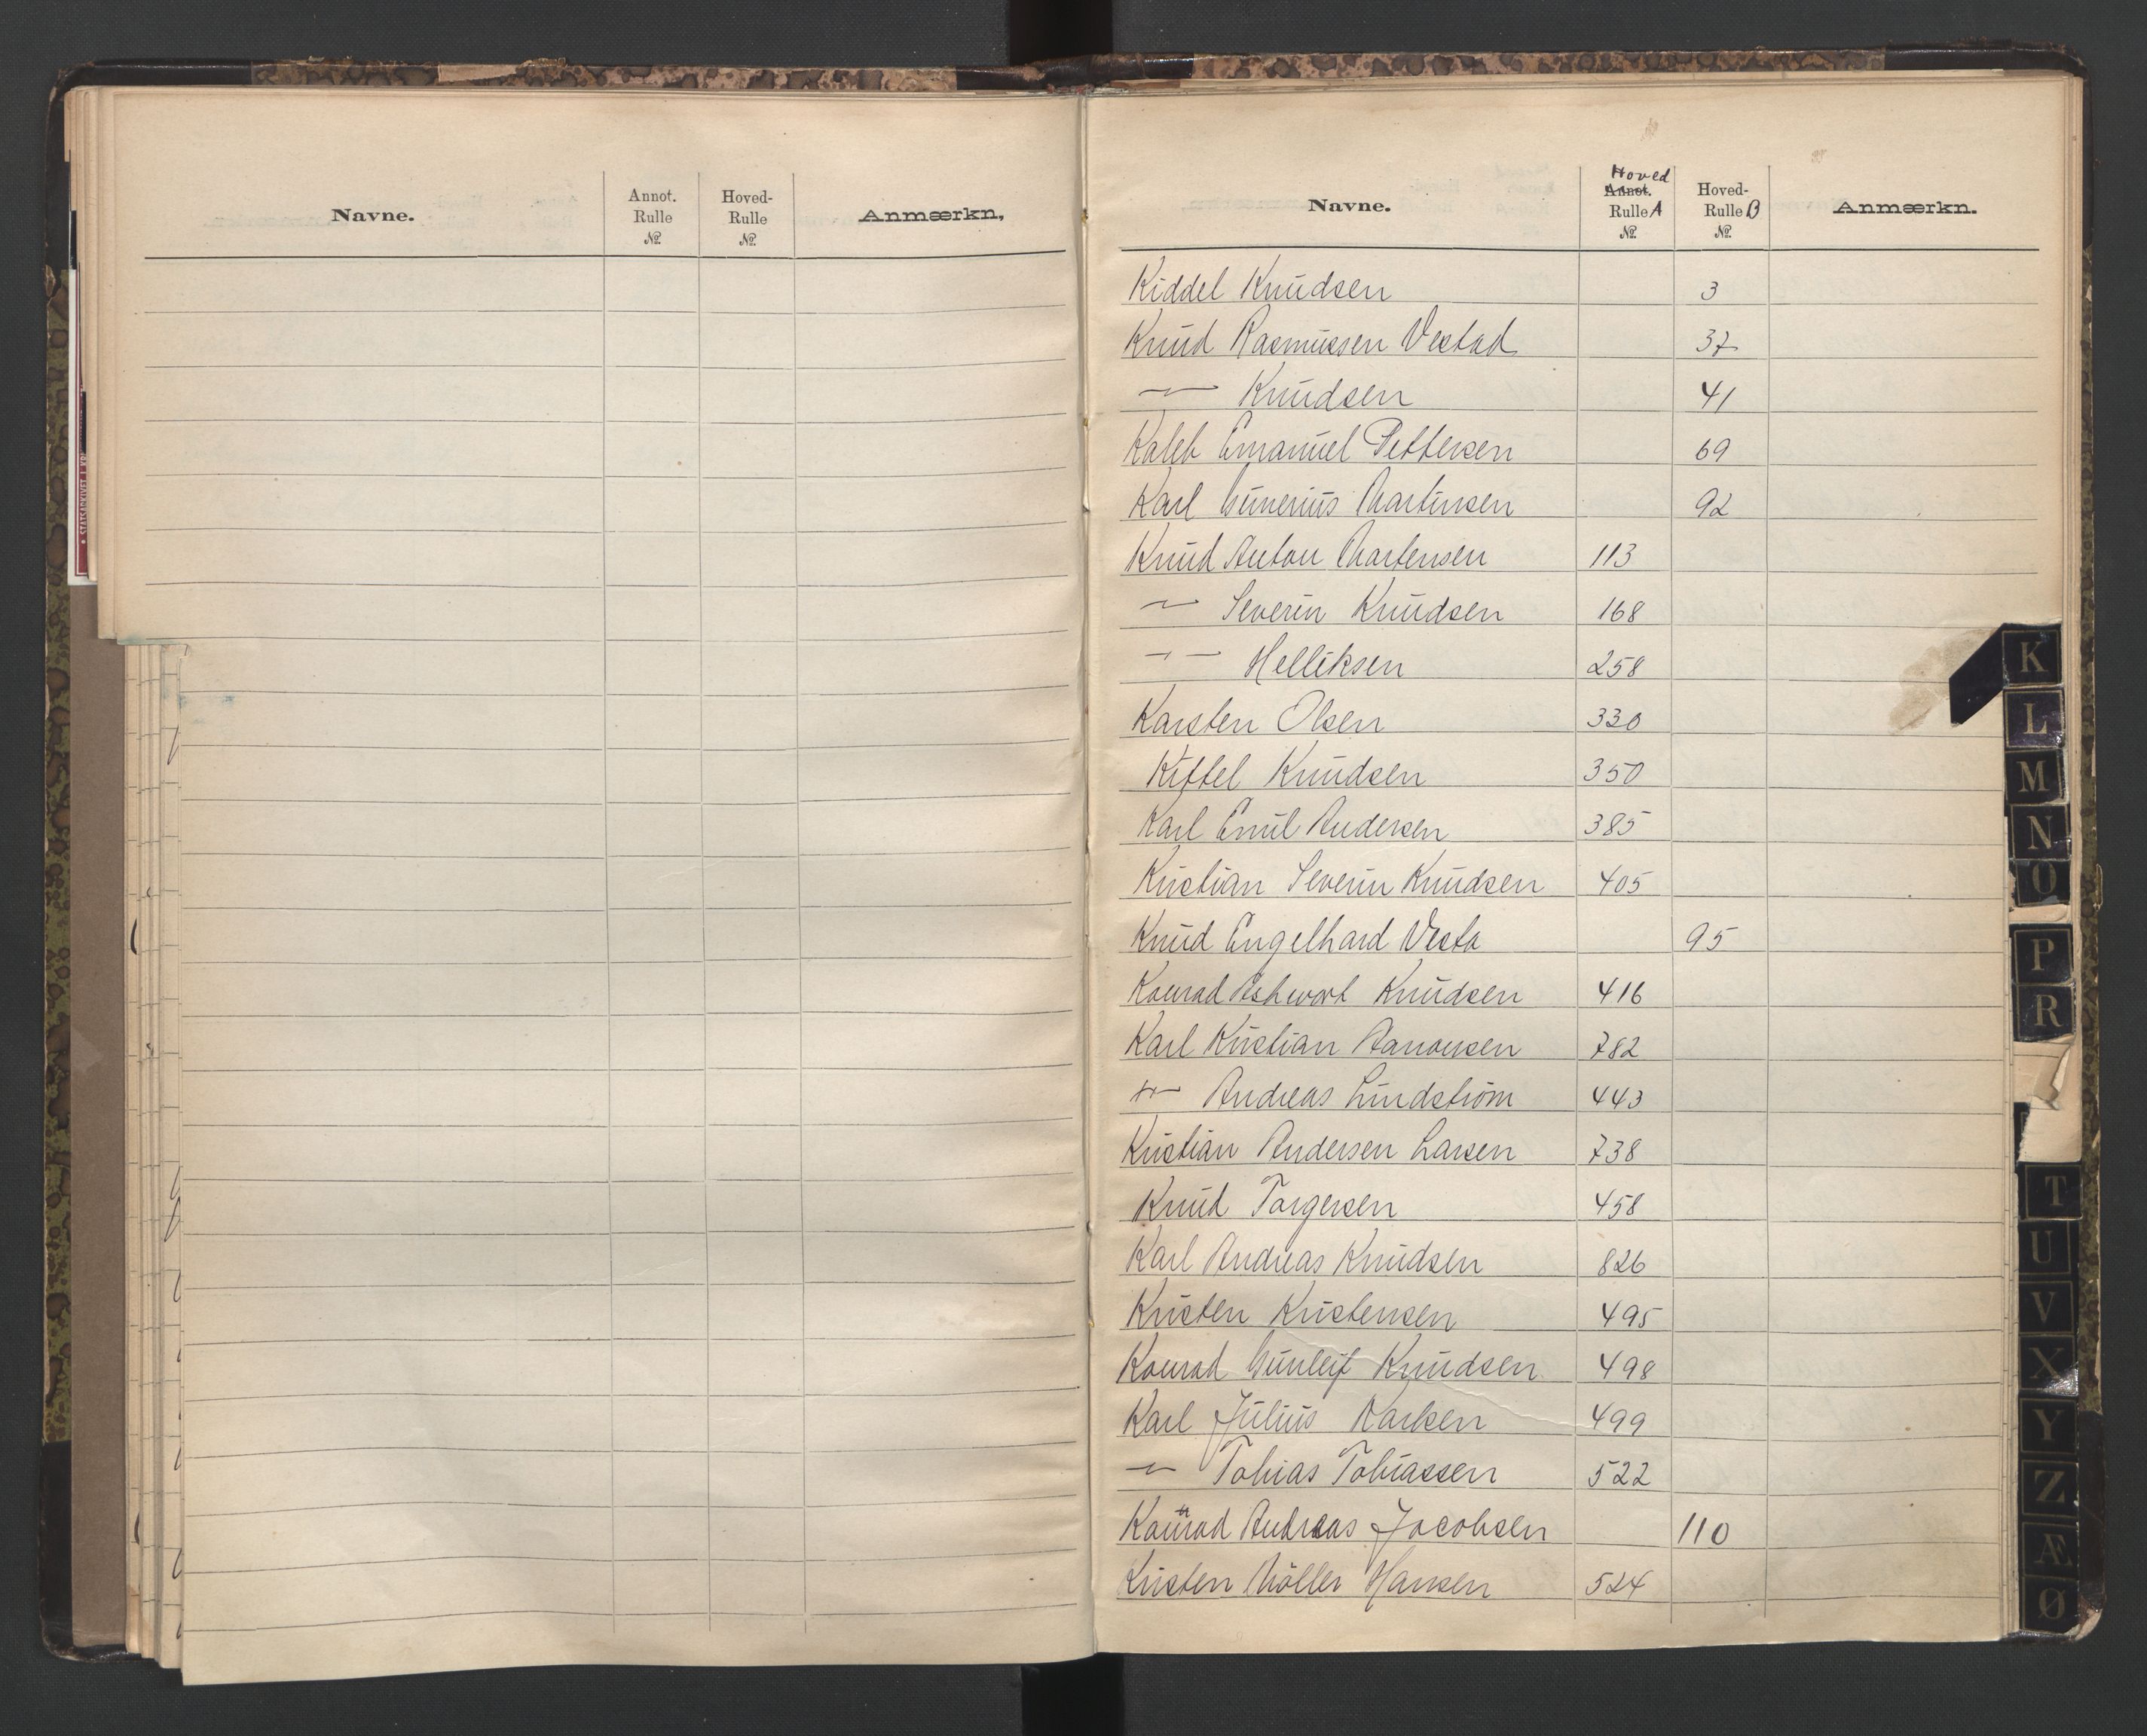 Navne.
Annot. Rulle №
Hoved- Rulle №
Anmærkn,
Navne.
Hoved
Annot. Rulle A №
Hoved- Rulle B №
Anmærkn.
Kiddel Knudsen 3
Knud Rasmussen Vestad 37
—"— Knudsen 41
Kaleb Emanuel Pettersen 69
Karl Gunerius Martinsen 92
Knud Anton Martensen 113
—"— Severin Knudsen 168
—"— Helliksen 258
Karsten Olsen 330
Kittel Knudsen 350
Karl Emil Andersen 385
Kristian Severin Knudsen 405
Knud Engelhard Vesta 95
Konrad Knudsen 416
Karl Kristian Aanonsen 782
—"— Andreas Lindström 443
Kristian Andersen Larsen 738
Knud Torgersen 458
Karl Andreas Knudsen 826
Kristen Kristensen 495
Konrad Gunleif Knudsen 498
Karl Julius Karlsen 499
—"— Tobias Tobiassen 522
Konrad Andreas Jacobsen 110
Kristen Möller Hansen 524
K
L
M
N
O
P
R
T
U
V
X
Y
Z
Æ
Ø